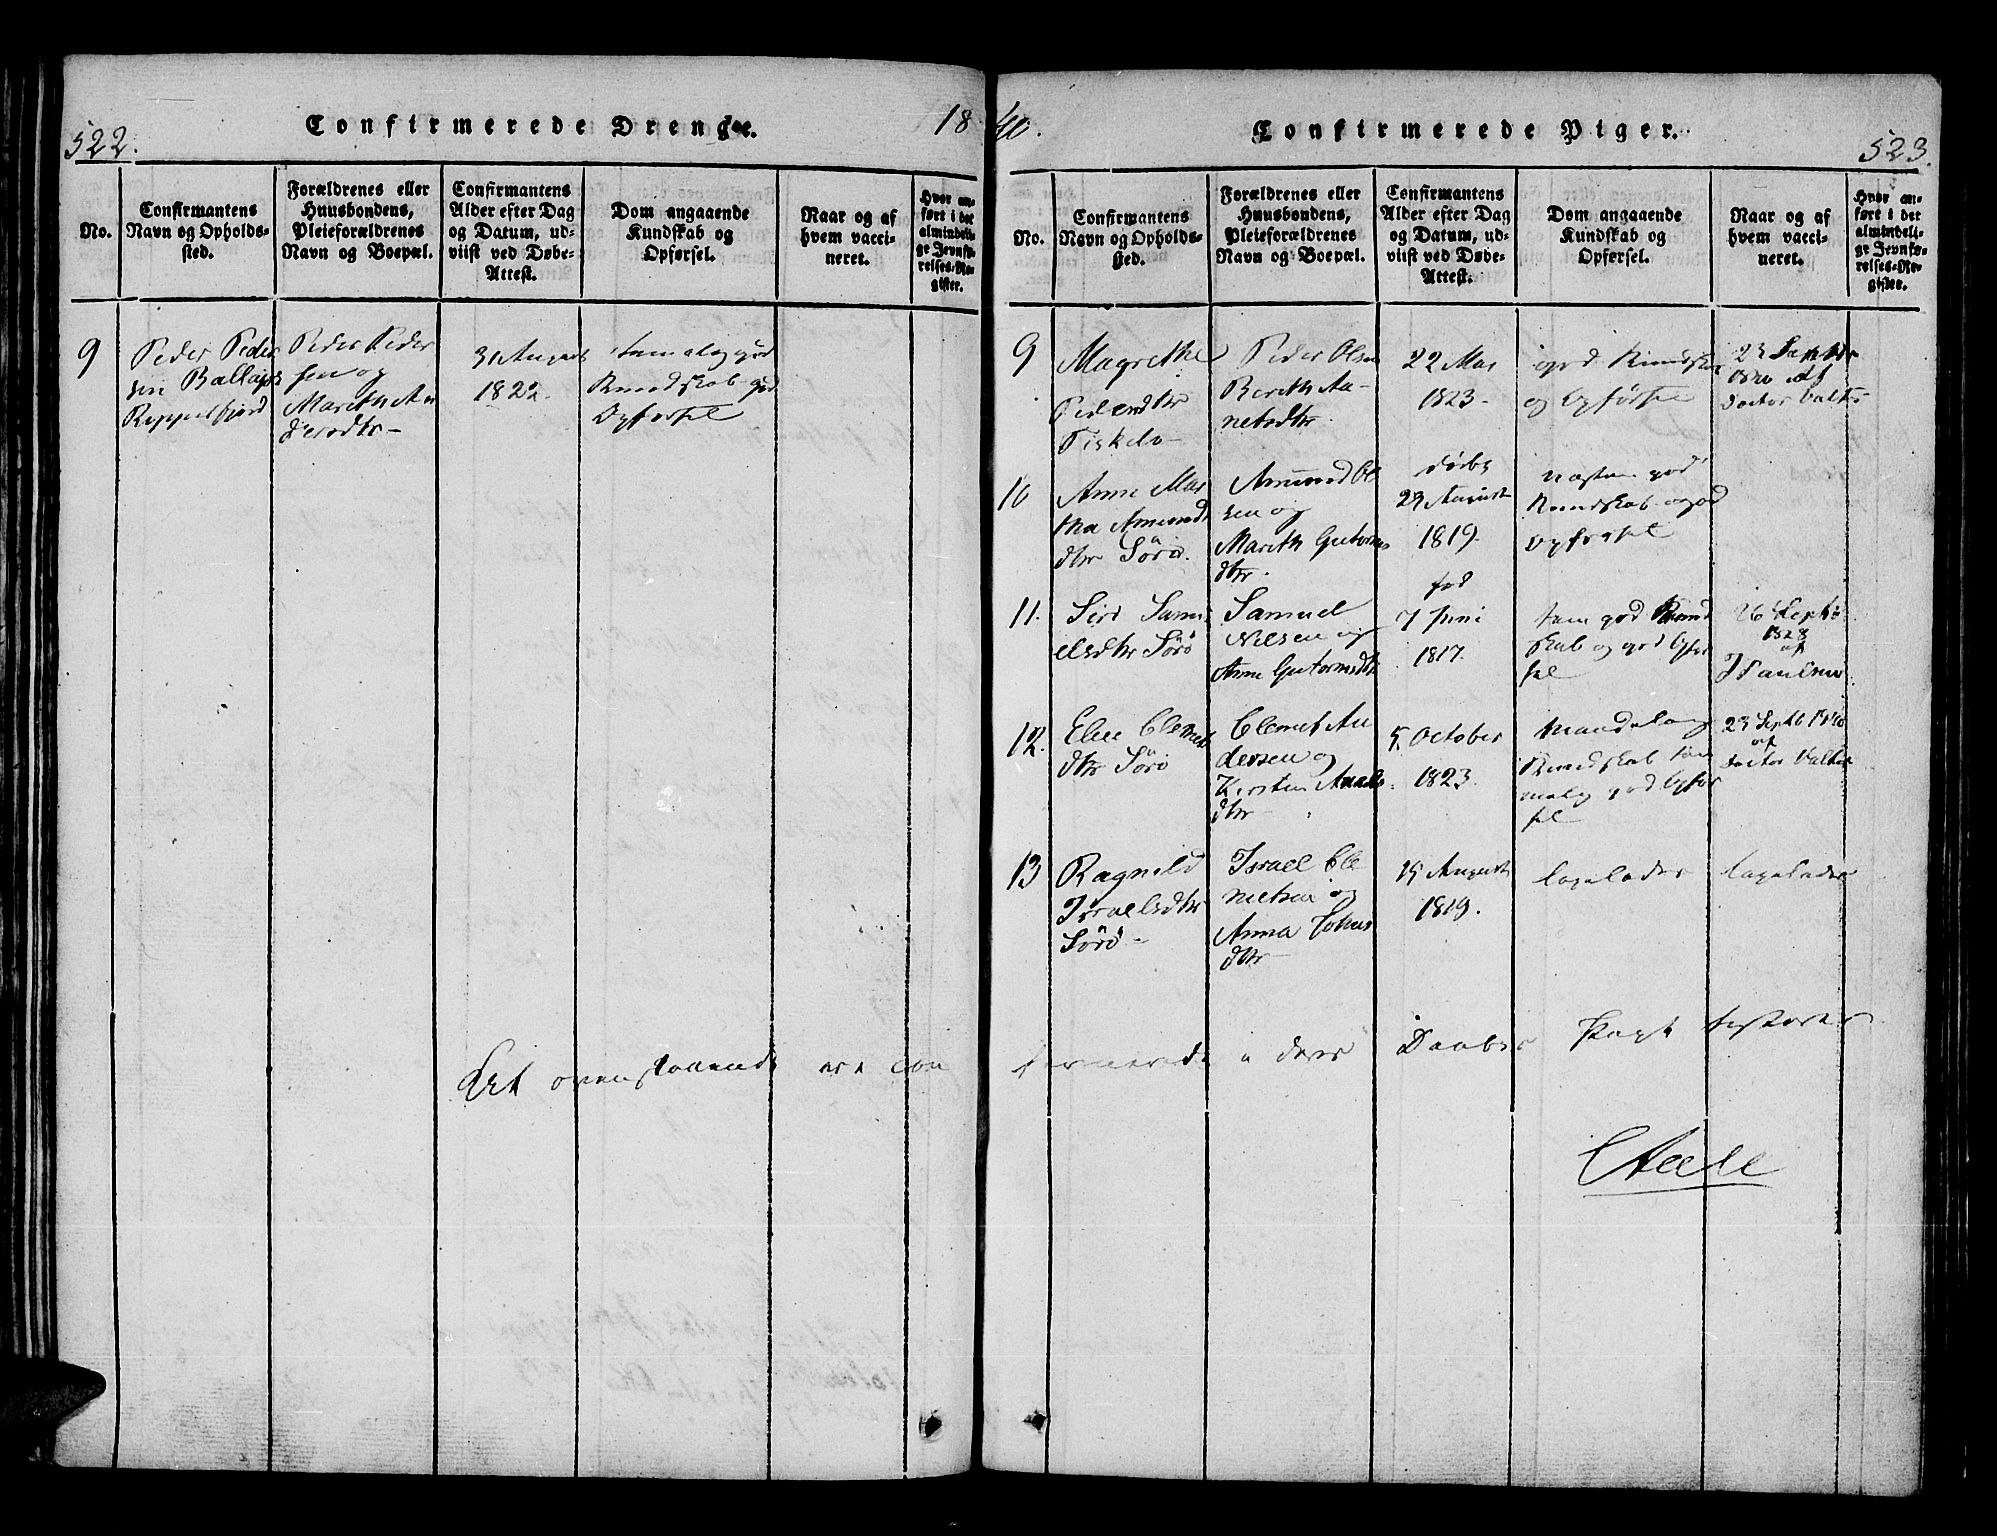 522.
Confirmerede Drenge.
18
No.
Confirmantens
Navn og Opholds-
sted.
Forældrenes eller
Huusbondens,
Pleieforældrenes
Navn og Boepæl.
Confirmantens
Alder efter Dag
og Datum, ud-
viist ved Døbe-
Attest.
Dom angaaende
Kundskab og
Opførsel.
Naar og af
hvem vacci-
neret.
Hvor an-
ført i det
almindeli-
ge Jevnfø-
relses-Re-
gister.
9
Peder Peder
sen
Repperfjord
Peder Peder
sen og
Mareth An
dersdtr-
31 August
1822.
temalig god
Kundskab god
Opførsel
Det ovenstaaende ere con
40.
Confirmerede Piger.
523.
No.
Confirmantens
Navn og Opholds-
sted.
Forældrenes eller
Huusbondens,
Pleieforældrenes
Navn og Boepæl.
Confirmantens
Alder efter Dag
og Datum, ud-
viist ved Døbe-
Attest.
Dom angaaende
Kundskab og
Opførsel.
Naar og af
hvem vacci-
neret.
Hvor an-
ført i det
almindeli-
ge Jevnfø-
relses-Re-
gister.
9
Magrethe
Pedersdtr
Peder Olsen
Bereth
22 Mai
1823-
god Kundskab
og Opførsel
23 Septbr
af
Doctor Valter
10
Anne Mar
tha Amunds
dtr Sörö.
Amund Ol
sen og
Mareth Gutorms
dtr.
døbt
29 August
1819.
næsten god
Kundskab og god
Opførsel
11.
Siri Samu
elsdtr Sörö
Samuel
Nilsen og
Anne Gutormsdtr
fød
7 Juni
1817.
tem god Kund
skab og god Opfør
sel
26 Septbr
1828
af
J Paulsen
12.
Elen Clemets
dtr Sörö
Clemet An
dersen og
Kirsten
dtr
5. October
1823.
Kundskab tem
melig god Opfør
sel
23 Septb 1840
af
Doctor Valter
13
Ragnild
Israelsdtr
Sörö-
Israel Cle
metsen og
Anna Johns
dtr-
15 August
1819.
firmerede i deres Daabes Pagt